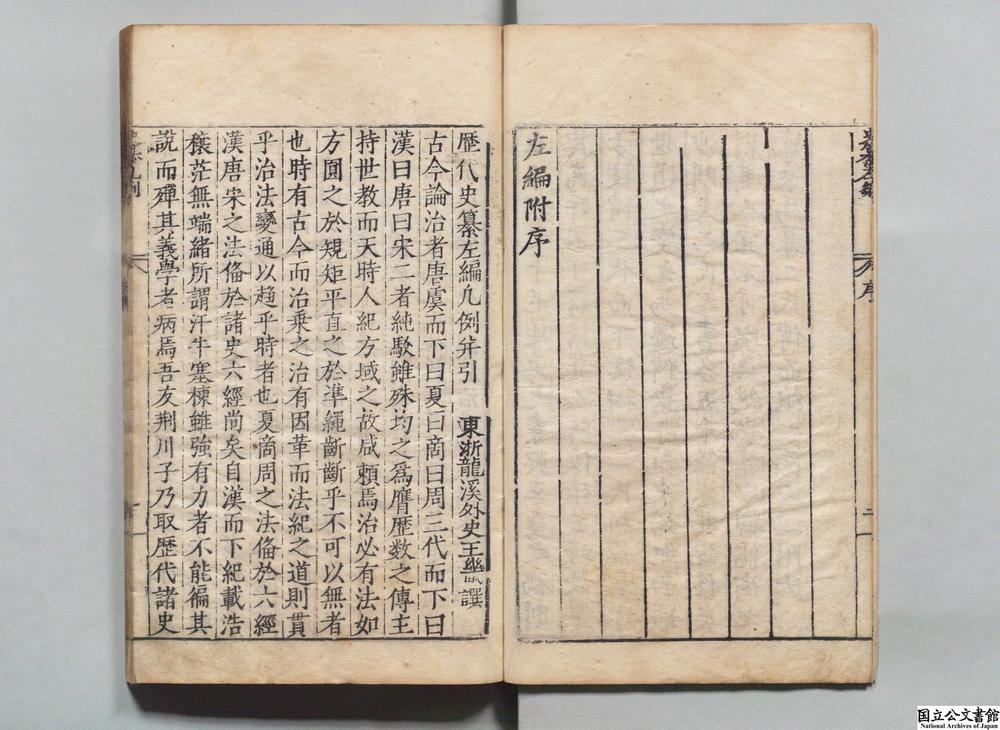 左編附序
歷代史纂左編凡例并引 東浙龍溪外史王畿撰
古今論治者唐虞而下曰夏曰商曰周三代而下曰
漢曰唐曰宋二者純駁雖殊均之為膺歷數之傳主
持世教而天時人紀方域之故咸賴焉治必有法如
方圓之於規矩平直之於準繩斷斷乎不可以無者
也時有古今而治乗之治有因革而法紀之道則貫
乎治法變通以趨乎時者也夏啇周之法俻於六經
漢唐宋之法俻於諸史六經尚矣自漢而下紀載浩
穰茫無端緒所謂汗牛塞棟雖強有力者不能徧其
說而殫其義學者病焉吾友荆川子乃取歷代諸史
国立公文書館
National Archives of Japan